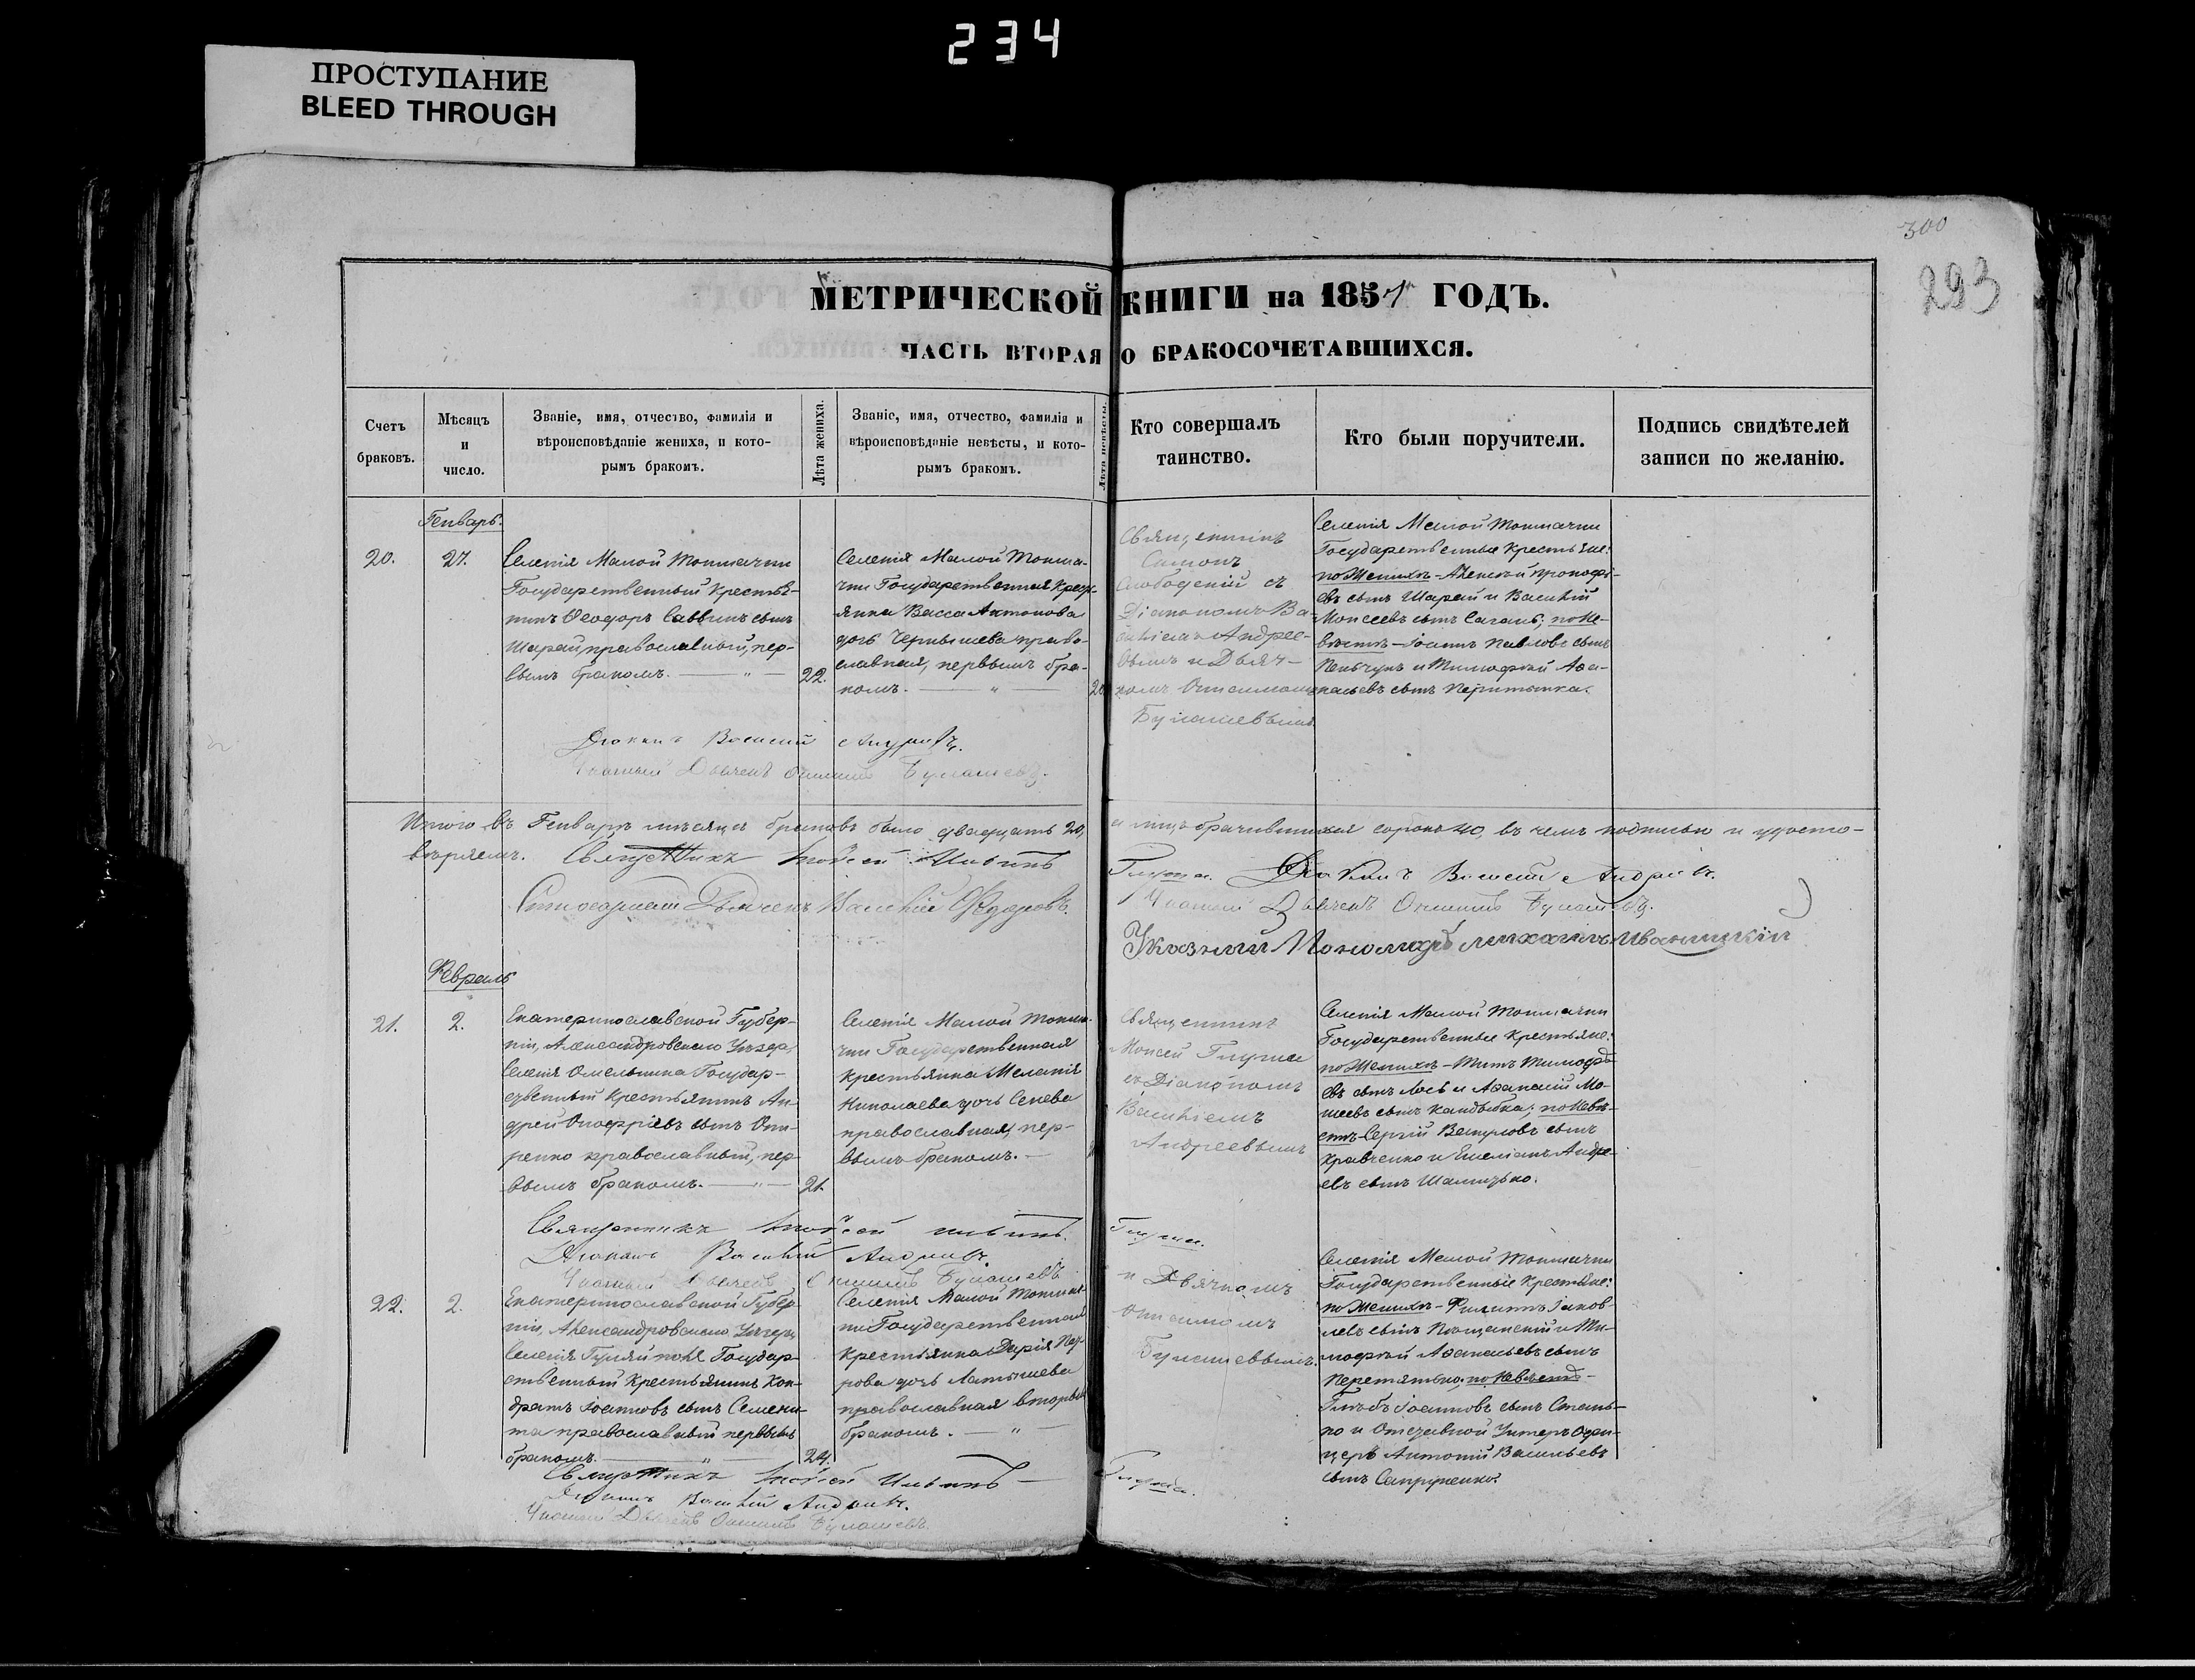 234
ПРОСТУПАНИЕ
BLEED THROUGH
300
293
МЕТРИЧЕСКОЙ КНИГИ на 1857 ГОДЪ.
ЧАСТЬ ВТОРАЯ О БРАКОСОЧЕТАВШИХСЯ.
Счетъ
браковъ.
Мѣсяцъ
и
число.
Званіе, имя, отчество, фамилія и
вѣроисповѣданіе жениха, и кото-
рымъ бракомъ.
Лѣта жениха.
Званіе, имя, отчество, фамилія и
вѣроисповѣданіе невѣсты, и кото-
рымъ бракомъ.
Лѣта невѣсты.
Кто совершалъ
таинство.
Кто были поручители.
Подпись свидѣтелей
записи по желанію.
Генварь.
20.
27.
Селенія Малой Токмачки
Государственный Крестья-
нинъ Ѳеодоръ Саввинъ сынъ
Шарай, православный, пер-
вымъ бракомъ.
22.
Селенія Малой Токма-
чки Государственная Крест-
янка Васса Антонова
дочь Чернышева право-
славная, первымъ бра-
комъ.
Священникъ
Симонъ
Слободскій съ
Діакономъ Ва-
силіемъ Андрее-
вымъ и Дьяч-
комъ
Булашевымъ
Селенія Малой Токмачки
Государственные Крестьяне:
по Женихѣ - Алексѣй Прокофі-
евъ сынъ Шарай и Василій
Моисеевъ сынъ Сагань; по Не-
вѣстѣ - Іоаннъ Павловъ сынъ
и Тимофѣй Аѳа-
насьевъ сынъ Перетятка.
Діаконъ Василій Андреевъ.
Дьячекъ Булашевъ.
Итого въ Генварѣ мѣсяцѣ браковъ было двадцать 20,
а лицъ брачившихся сорокъ 40, въ чемъ подписью и удосто-
вѣряемъ. Священникъ Моѵсей Ильинъ
Глушка. Діаконъ Василій Андреевъ.
Дьячекъ Василій Ѳедоровъ.
Дьячекъ Булашевъ.
Указный Пономарь Иваницкій
Февраль
21.
2.
Екатеринославской Губер-
ніи, Александровскаго Уѣзда,
Селенія Омельника Государ-
ственный Крестьянинъ Ан-
дрей Онофріевъ сынъ Они-
щенко православный, пер-
вымъ бракомъ.
21.
Селенія Малой Токма-
чки Государственная
Крестьянка Меланія
Николаева дочь Сенева
православная, пер-
вымъ бракомъ.
Священникъ
Моисей Глушка
съ Діакономъ
Василіемъ
Андреевымъ
Селенія Малой Токмачки
Государственные Крестьяне:
по Женихѣ - Титъ Тимофѣ-
евъ сынъ Лось и Аѳанасій Мо-
исеевъ сынъ Кандыбка; по Невѣ-
стѣ - Сергій сынъ
Кравченко и Емеліанъ Андре-
евъ сынъ
Священникъ Моѵсей Ильинъ
Глушка.
Діаконъ Василій Андреевъ.
Дьячекъ Булашевъ
22.
2.
Екатеринославской Губер-
ніи, Александровскаго Уѣзда,
Селенія Гуляйполе Государ-
ственный Крестьянинъ Кон-
дратъ Іоанновъ сынъ Семени-
та православный первымъ
бракомъ.
24.
Селенія Малой Токмач-
ки Государственная
Крестьянка Дарія Пед-
рова дочь Латышева
православная вторымъ
бракомъ.
и Дьячкомъ
Булашевымъ.
Селенія Малой Токмачки
Государственные Крестьяне:
по Женихѣ - Филиппъ Іаков-
левъ сынъ и Ти-
мофѣй Аѳанасьевъ сынъ
Перетятько; по Невѣстѣ -
Глѣбъ Іоанновъ сынъ
и Отставной Унтеръ Офи-
церъ Антоній Васильевъ
сынъ Сапруненко.
Священникъ Моѵсей Ильинъ
Глушка.
Діаконъ Василій Андреевъ.
Дьячекъ Булашевъ